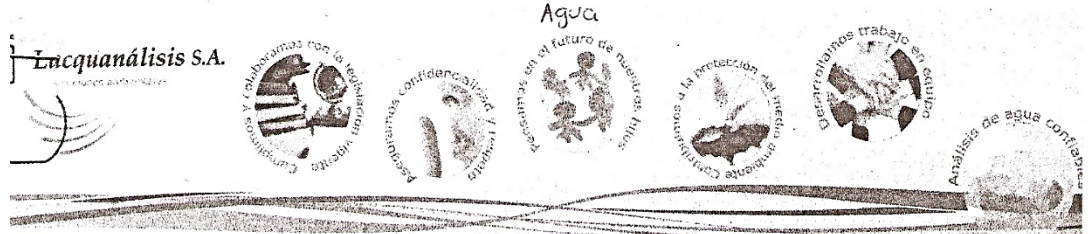 Agua
Lacquanálisis S.A.
Cumplimos y colaboramos con la legislación vigente
Aseguramos confidencialidad y respeto
Pensamos en el futuro de nuestros hijos
Contribuimos a la protección del medio ambiente
Desarrollamos trabajo en equipo
Análisis de agua confiables